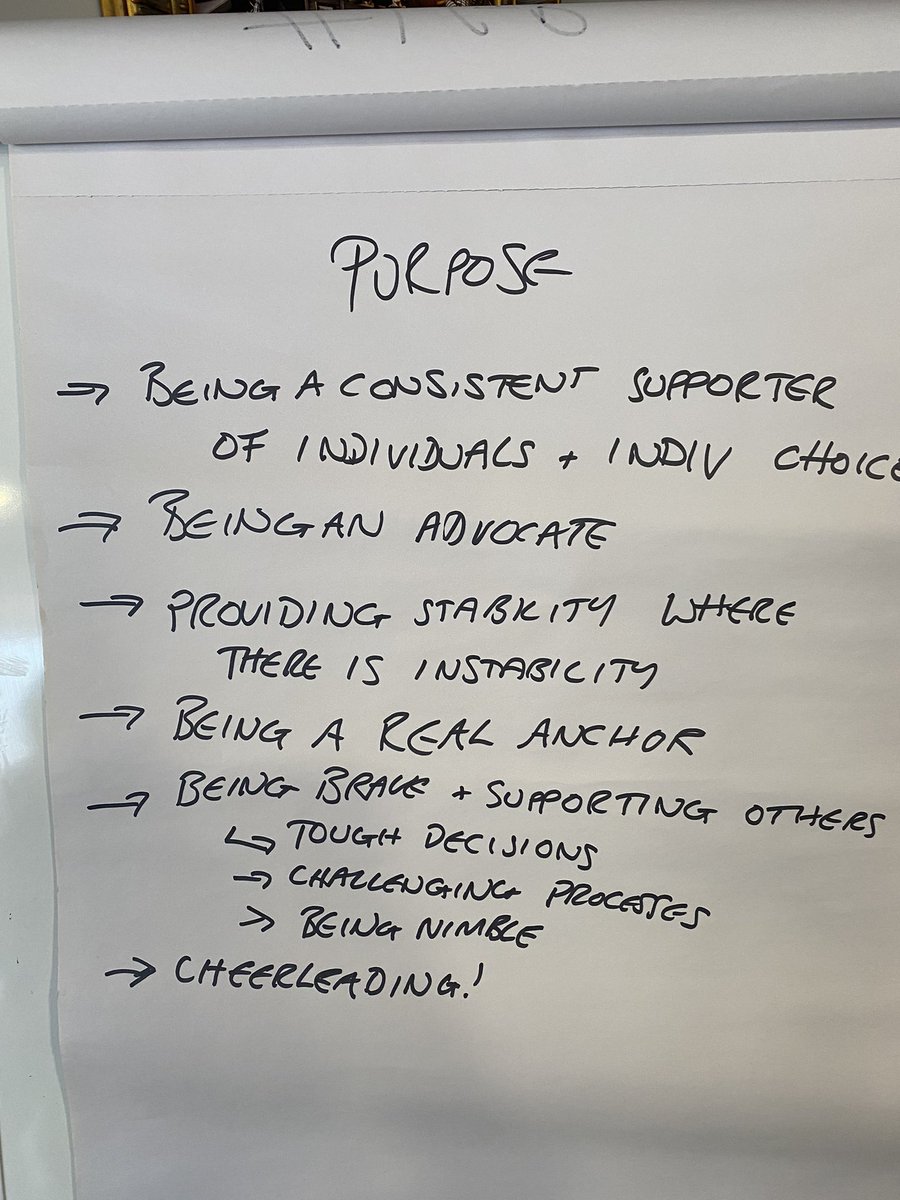 PURPOSE
→ BEING A CONSISTENT SUPPORTER
OF INDIVIDUALS + INDIV CHOICE
→ BEING AN ADVOCATE
→ PROVIDING STABILITY WHERE
THERE IS INSTABILITY
→ BEING A REAL ANCHOR
→ BEING BRAVE + SUPPORTING OTHERS
↳ TOUGH DECISIONS
→ CHALLENGING PROCESSES
> BEING NIMBLE
→ CHEERLEADING!